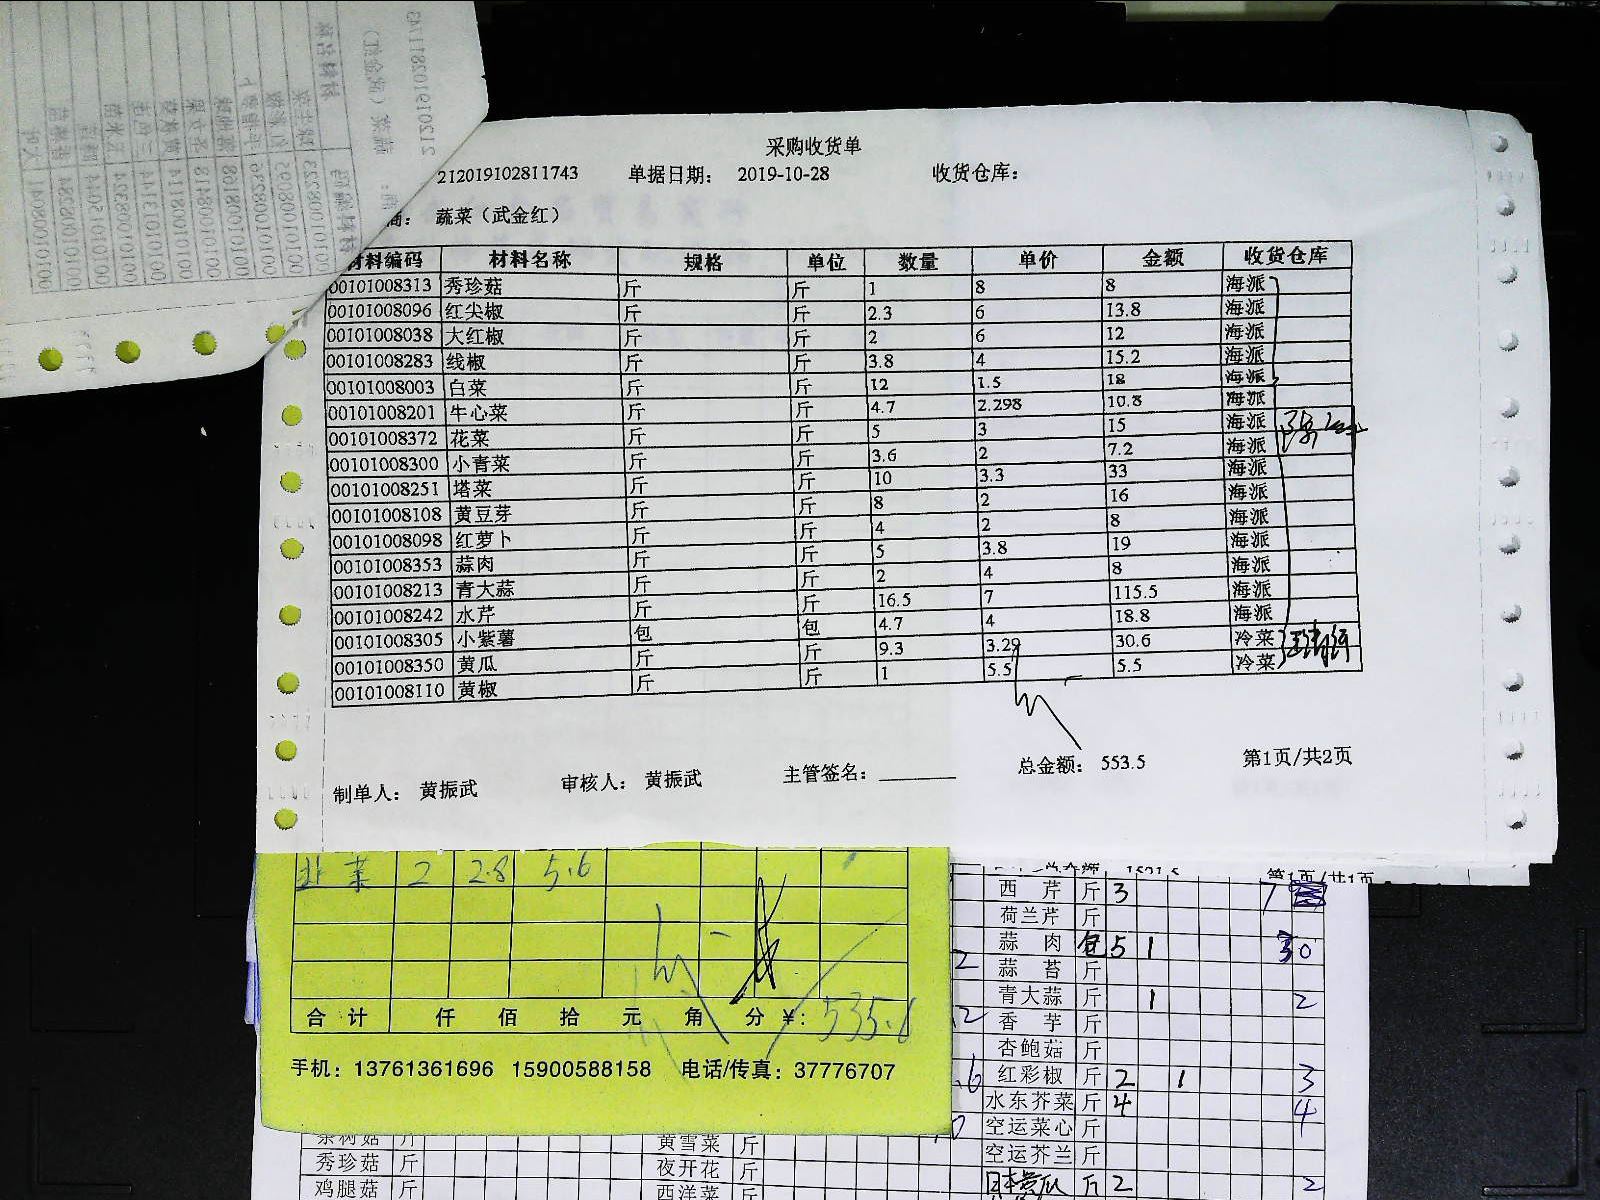 采购收货单
212019102811743 单据日期: 2019-10-28 收货仓库:
商: 蔬菜(武金红)
材料编码 材料名称 规格 单位 数量 单价 金额 收货仓库
00101008313 秀珍菇 斤 斤 1 8 8 海派
00101008096 红尖椒 斤 斤 2.3 6 13.8 海派
00101008038 大红椒 斤 斤 2 6 12 海派
00101008283 线椒 斤 斤 3.8 4 15.2 海派
00101008003 白菜 斤 斤 12 1.5 18 海派
00101008201 牛心菜 斤 斤 4.7 2.298 10.8 海派
00101008372 花菜 斤 斤 5 3 15 海派
00101008300 小青菜 斤 斤 3.6 2 7.2 海派
00101008251 塔菜 斤 斤 10 3.3 33 海派
00101008108 黄豆芽 斤 斤 8 2 16 海派
00101008098 红萝卜 斤 斤 4 2 8 海派
00101008353 蒜肉 斤 斤 5 3.8 19 海派
00101008213 青大蒜 斤 斤 2 4 8 海派
00101008242 水芹 斤 斤 16.5 7 115.5 海派
00101008305 小紫薯 包 包 4.7 4 18.8 海派
00101008350 黄瓜 斤 斤 9.3 3.29 30.6 冷菜
00101008110 黄椒 斤 斤 1 5.5 5.5 冷菜
总金额: 553.5 第1页/共2页
制单人: 黄振武 审核人: 黄振武 主管签名:
韭菜 2 2.8 5.6
合计 仟 佰 拾 元 角 分 ¥: 535.6
手机: 13761361696 15900588158 电话/传真: 37776707
第1页/共1页
西芹 斤 3 7
荷兰芹 斤
蒜肉 包 5 1 30
蒜苔 斤
青大蒜 斤 1 2
香芋 斤
杏鲍菇 斤
红彩椒 斤 2 1 3
水东芥菜 斤 4 4
空运菜心 斤
空运芥兰 斤
日本黄瓜 斤 2 2
茶树菇 斤 黄雪菜 斤
秀珍菇 斤 夜开花 斤
鸡腿菇 斤 西洋菜 斤